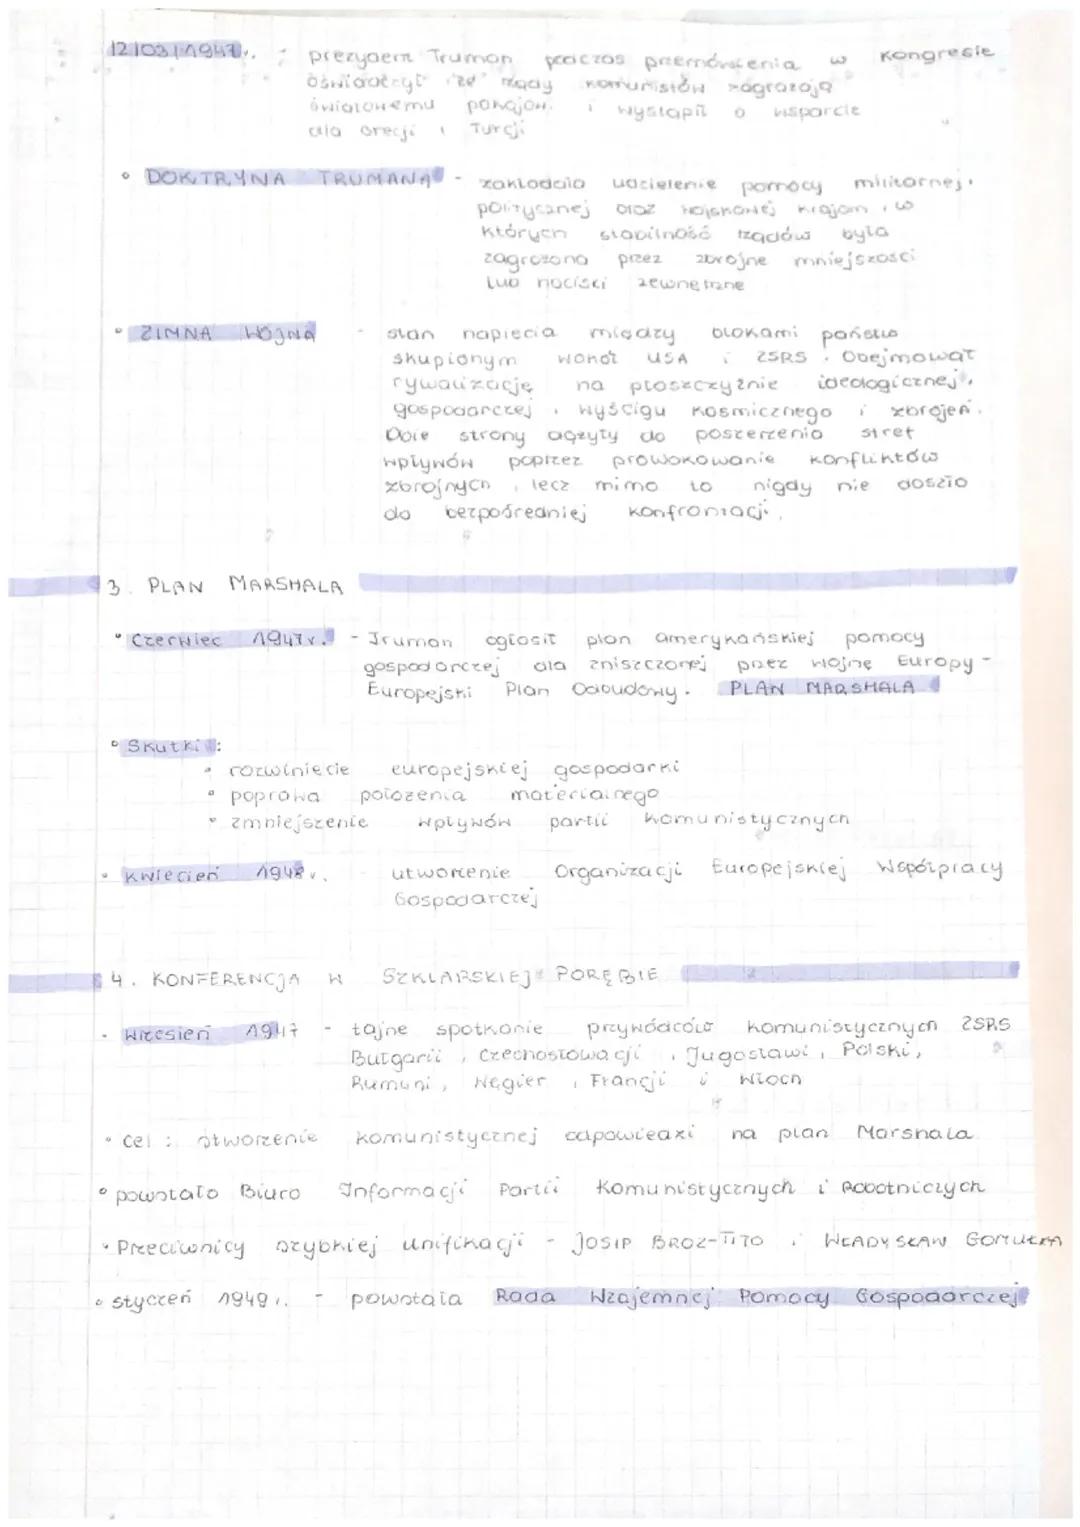 12|03|1947r. - prezydent Truman podczas przemówienia w Kongresie
oświadczył że rządy komunistów zagrażają
światowemu pokojowi i wystąpił o wsparcie
dla Grecji i Turcji
• DOKTRYNA TRUMANA - zakładała udzielenie pomocy militarnej,
politycznej oraz wojskowej krajom, w
których stabilność rządów była
zagrożona przez zbrojne mniejszości
lub naciski zewnętrzne
• ZIMNA WOJNA - stan napięcia między blokami państw
skupionym wokół USA i ZSRS. Obejmował
rywalizację na płaszczyźnie ideologicznej,
gospodarczej, wyścigu kosmicznego i zbrojeń.
Obie strony dążyły do poszerzenia stref
wpływów poprzez prowokowanie konfliktów
zbrojnych, lecz mimo to nigdy nie doszło
do bezpośredniej konfrontacji.
3. PLAN MARSHALA
• Czerwiec 1947r. - Truman ogłosił plan amerykańskiej pomocy
gospodarczej dla zniszczonej przez wojnę Europy -
Europejski Plan Odbudowy. PLAN MARSHALA
• Skutki:
• rozwinięcie europejskiej gospodarki
• poprawa położenia materialnego
• zmniejszenie wpływów partii komunistycznych
• Kwiecień 1948r. utworzenie Organizacji Europejskiej Współpracy
Gospodarczej
4. KONFERENCJA W SZKLARSKIEJ PORĘBIE
• Wrzesień 1947 - tajne spotkanie przywódców komunistycznych ZSRS
Bułgarii, Czechosłowacji, Jugosławi, Polski,
Rumuni, Węgier, Francji i Włoch
• Cel: stworzenie komunistycznej odpowiedzi na plan Marshala
• powstało Biuro Informacji Partii Komunistycznych i Robotniczych
• Przeciwnicy szybkiej unifikacji - JOSIP BROZ-TITO i WŁADYSŁAW GOMUŁKA
• styczeń 1949r. - powstała Rada Wzajemnej Pomocy Gospodarczej